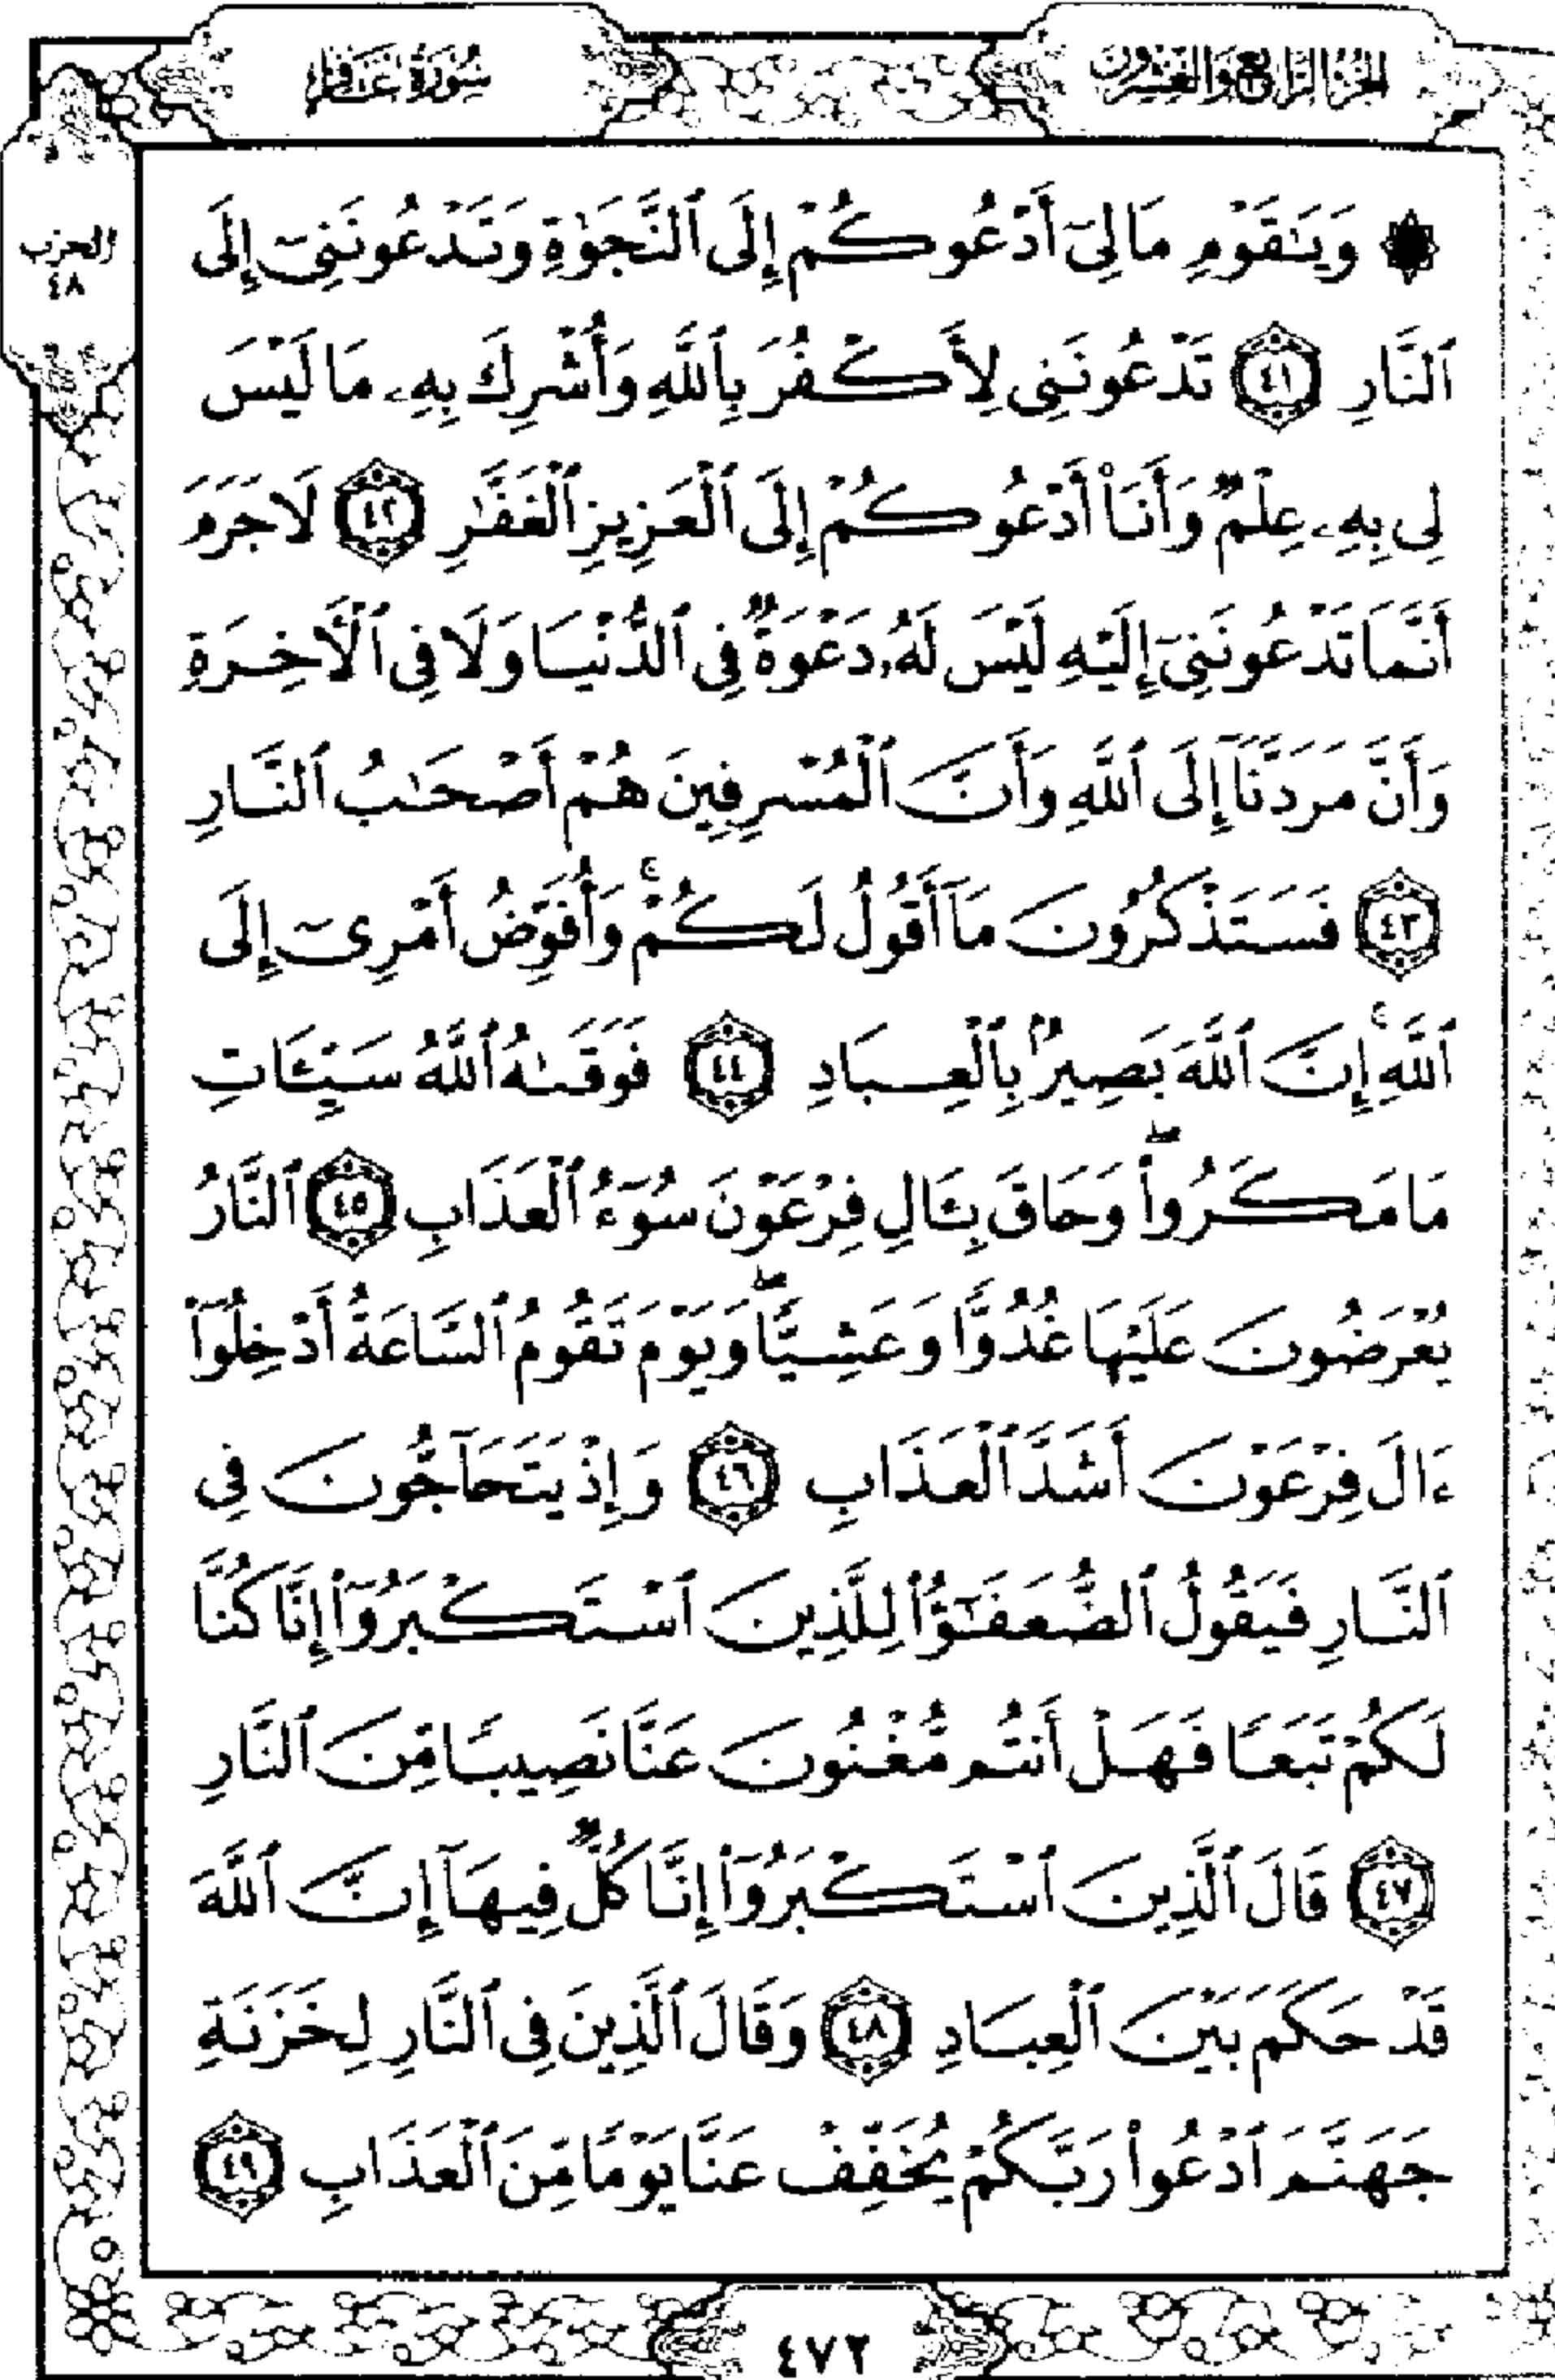 الجزء الرابع والعشرون
سورة غافر
الحزب
٤٨
۞ وَيَٰقَوْمِ مَا لِىٓ أَدْعُوكُمْ إِلَى ٱلنَّجَوٰةِ وَتَدْعُونَنِىٓ إِلَى
ٱلنَّارِ ٤١ تَدْعُونَنِى لِأَكْفُرَ بِٱللَّهِ وَأُشْرِكَ بِهِۦ مَا لَيْسَ
لِى بِهِۦ عِلْمٌ وَأَنَا۠ أَدْعُوكُمْ إِلَى ٱلْعَزِيزِ ٱلْغَفَّٰرِ ٤٢ لَا جَرَمَ
أَنَّمَا تَدْعُونَنِىٓ إِلَيْهِ لَيْسَ لَهُۥ دَعْوَةٌ فِى ٱلدُّنْيَا وَلَا فِى ٱلْأَخِرَةِ
وَأَنَّ مَرَدَّنَآ إِلَى ٱللَّهِ وَأَنَّ ٱلْمُسْرِفِينَ هُمْ أَصْحَٰبُ ٱلنَّارِ
٤٣ فَسَتَذْكُرُونَ مَآ أَقُولُ لَكُمْ ۚ وَأُفَوِّضُ أَمْرِىٓ إِلَى
ٱللَّهِ ۚ إِنَّ ٱللَّهَ بَصِيرٌۢ بِٱلْعِبَادِ ٤٤ فَوَقَىٰهُ ٱللَّهُ سَيِّـَٔاتِ
مَا مَكَرُوا۟ ۖ وَحَاقَ بِـَٔالِ فِرْعَوْنَ سُوٓءُ ٱلْعَذَابِ ٤٥ ٱلنَّارُ
يُعْرَضُونَ عَلَيْهَا غُدُوًّا وَعَشِيًّا ۖ وَيَوْمَ تَقُومُ ٱلسَّاعَةُ أَدْخِلُوٓا۟
ءَالَ فِرْعَوْنَ أَشَدَّ ٱلْعَذَابِ ٤٦ وَإِذْ يَتَحَآجُّونَ فِى
ٱلنَّارِ فَيَقُولُ ٱلضُّعَفَٰٓؤُا۟ لِلَّذِينَ ٱسْتَكْبَرُوٓا۟ إِنَّا كُنَّا
لَكُمْ تَبَعًا فَهَلْ أَنتُم مُّغْنُونَ عَنَّا نَصِيبًا مِّنَ ٱلنَّارِ
٤٧ قَالَ ٱلَّذِينَ ٱسْتَكْبَرُوٓا۟ إِنَّا كُلٌّ فِيهَآ إِنَّ ٱللَّهَ
قَدْ حَكَمَ بَيْنَ ٱلْعِبَادِ ٤٨ وَقَالَ ٱلَّذِينَ فِى ٱلنَّارِ لِخَزَنَةِ
جَهَنَّمَ ٱدْعُوا۟ رَبَّكُمْ يُخَفِّفْ عَنَّا يَوْمًا مِّنَ ٱلْعَذَابِ ٤٩
٤٧٢